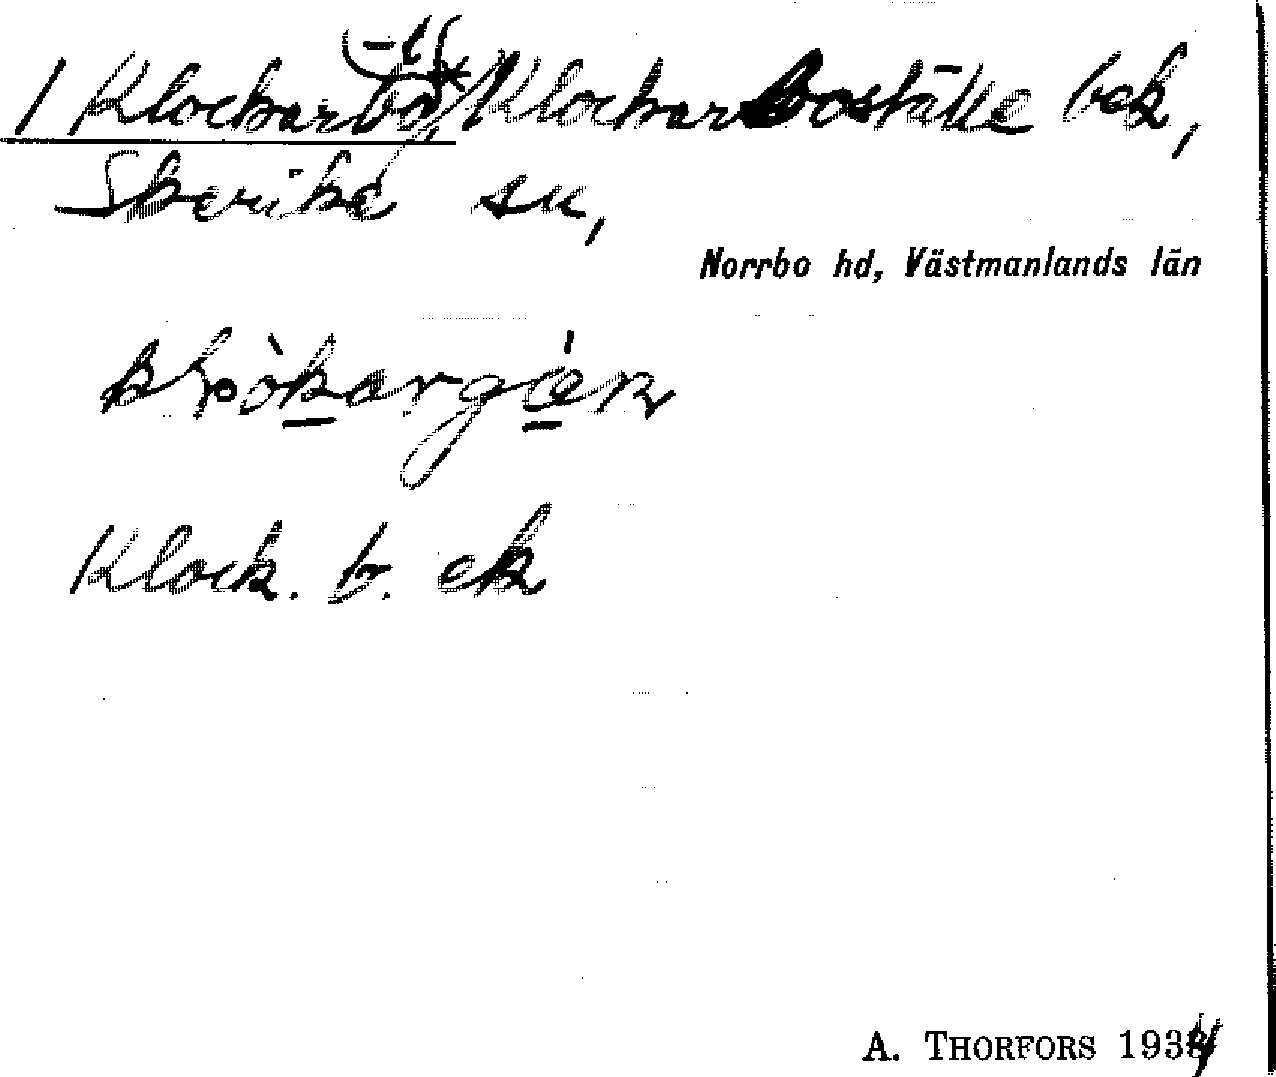 1 Klockarbo, Klockarboställe bek,
Skerike sn,
Norrbo hd, Västmanlands län
Klock. b. ek
A. THORFORS 1934